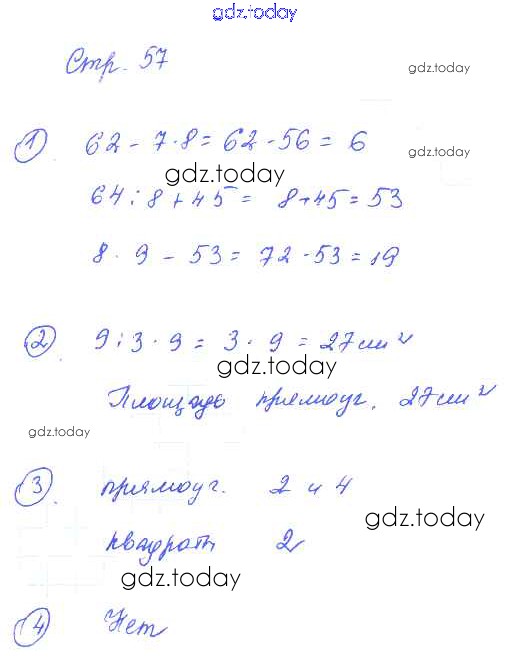 gdz.today
Стр. 57
gdz.today
1 62 - 7 · 8 = 62 - 56 = 6
gdz.today
gdz.today
64 : 8 + 45 = 8 + 45 = 53
8 · 9 - 53 = 72 - 53 = 19
2 9 : 3 · 9 = 3 · 9 = 27 см²
gdz.today
Площадь прямоуг. 27 см²
gdz.today
3 прямоуг. 2 и 4
gdz.today
квадраты 2
gdz.today
4 Нет
gdz.today